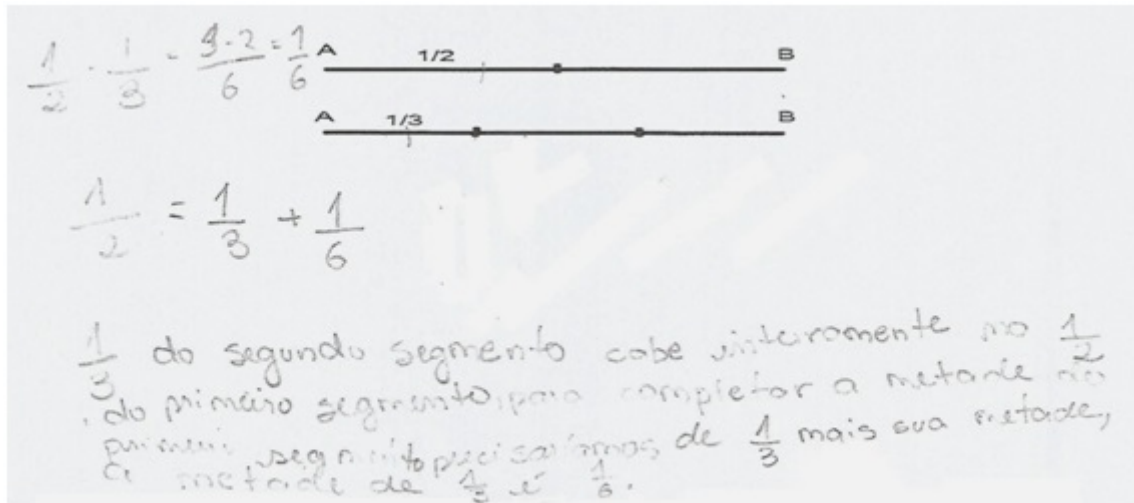 1/2 · 1/3 - 9·2/6 = 1/6
A 1/2 B
A 1/3 B
1/2 = 1/3 + 1/6
1/3 do segundo segmento cabe inteiramente no 1/2
do primeiro segmento, para completar a metade no
primeiro segmento precisaríamos de 1/3 mais sua metade,
a metade de 1/3 é 1/6.